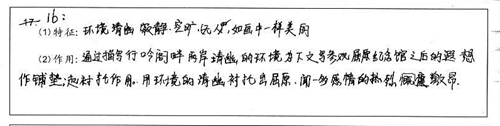 16:
(1)特征:环境清幽 寂静、空旷、优美,如画中一样美丽
(2)作用:通过描写行吟阁畔两岸清幽的环境为下文写参观屈原纪念馆之后的遐想
作铺垫;起衬托作用.用环境的清幽衬托出屈原、闻一多感情的热烈、激昂.